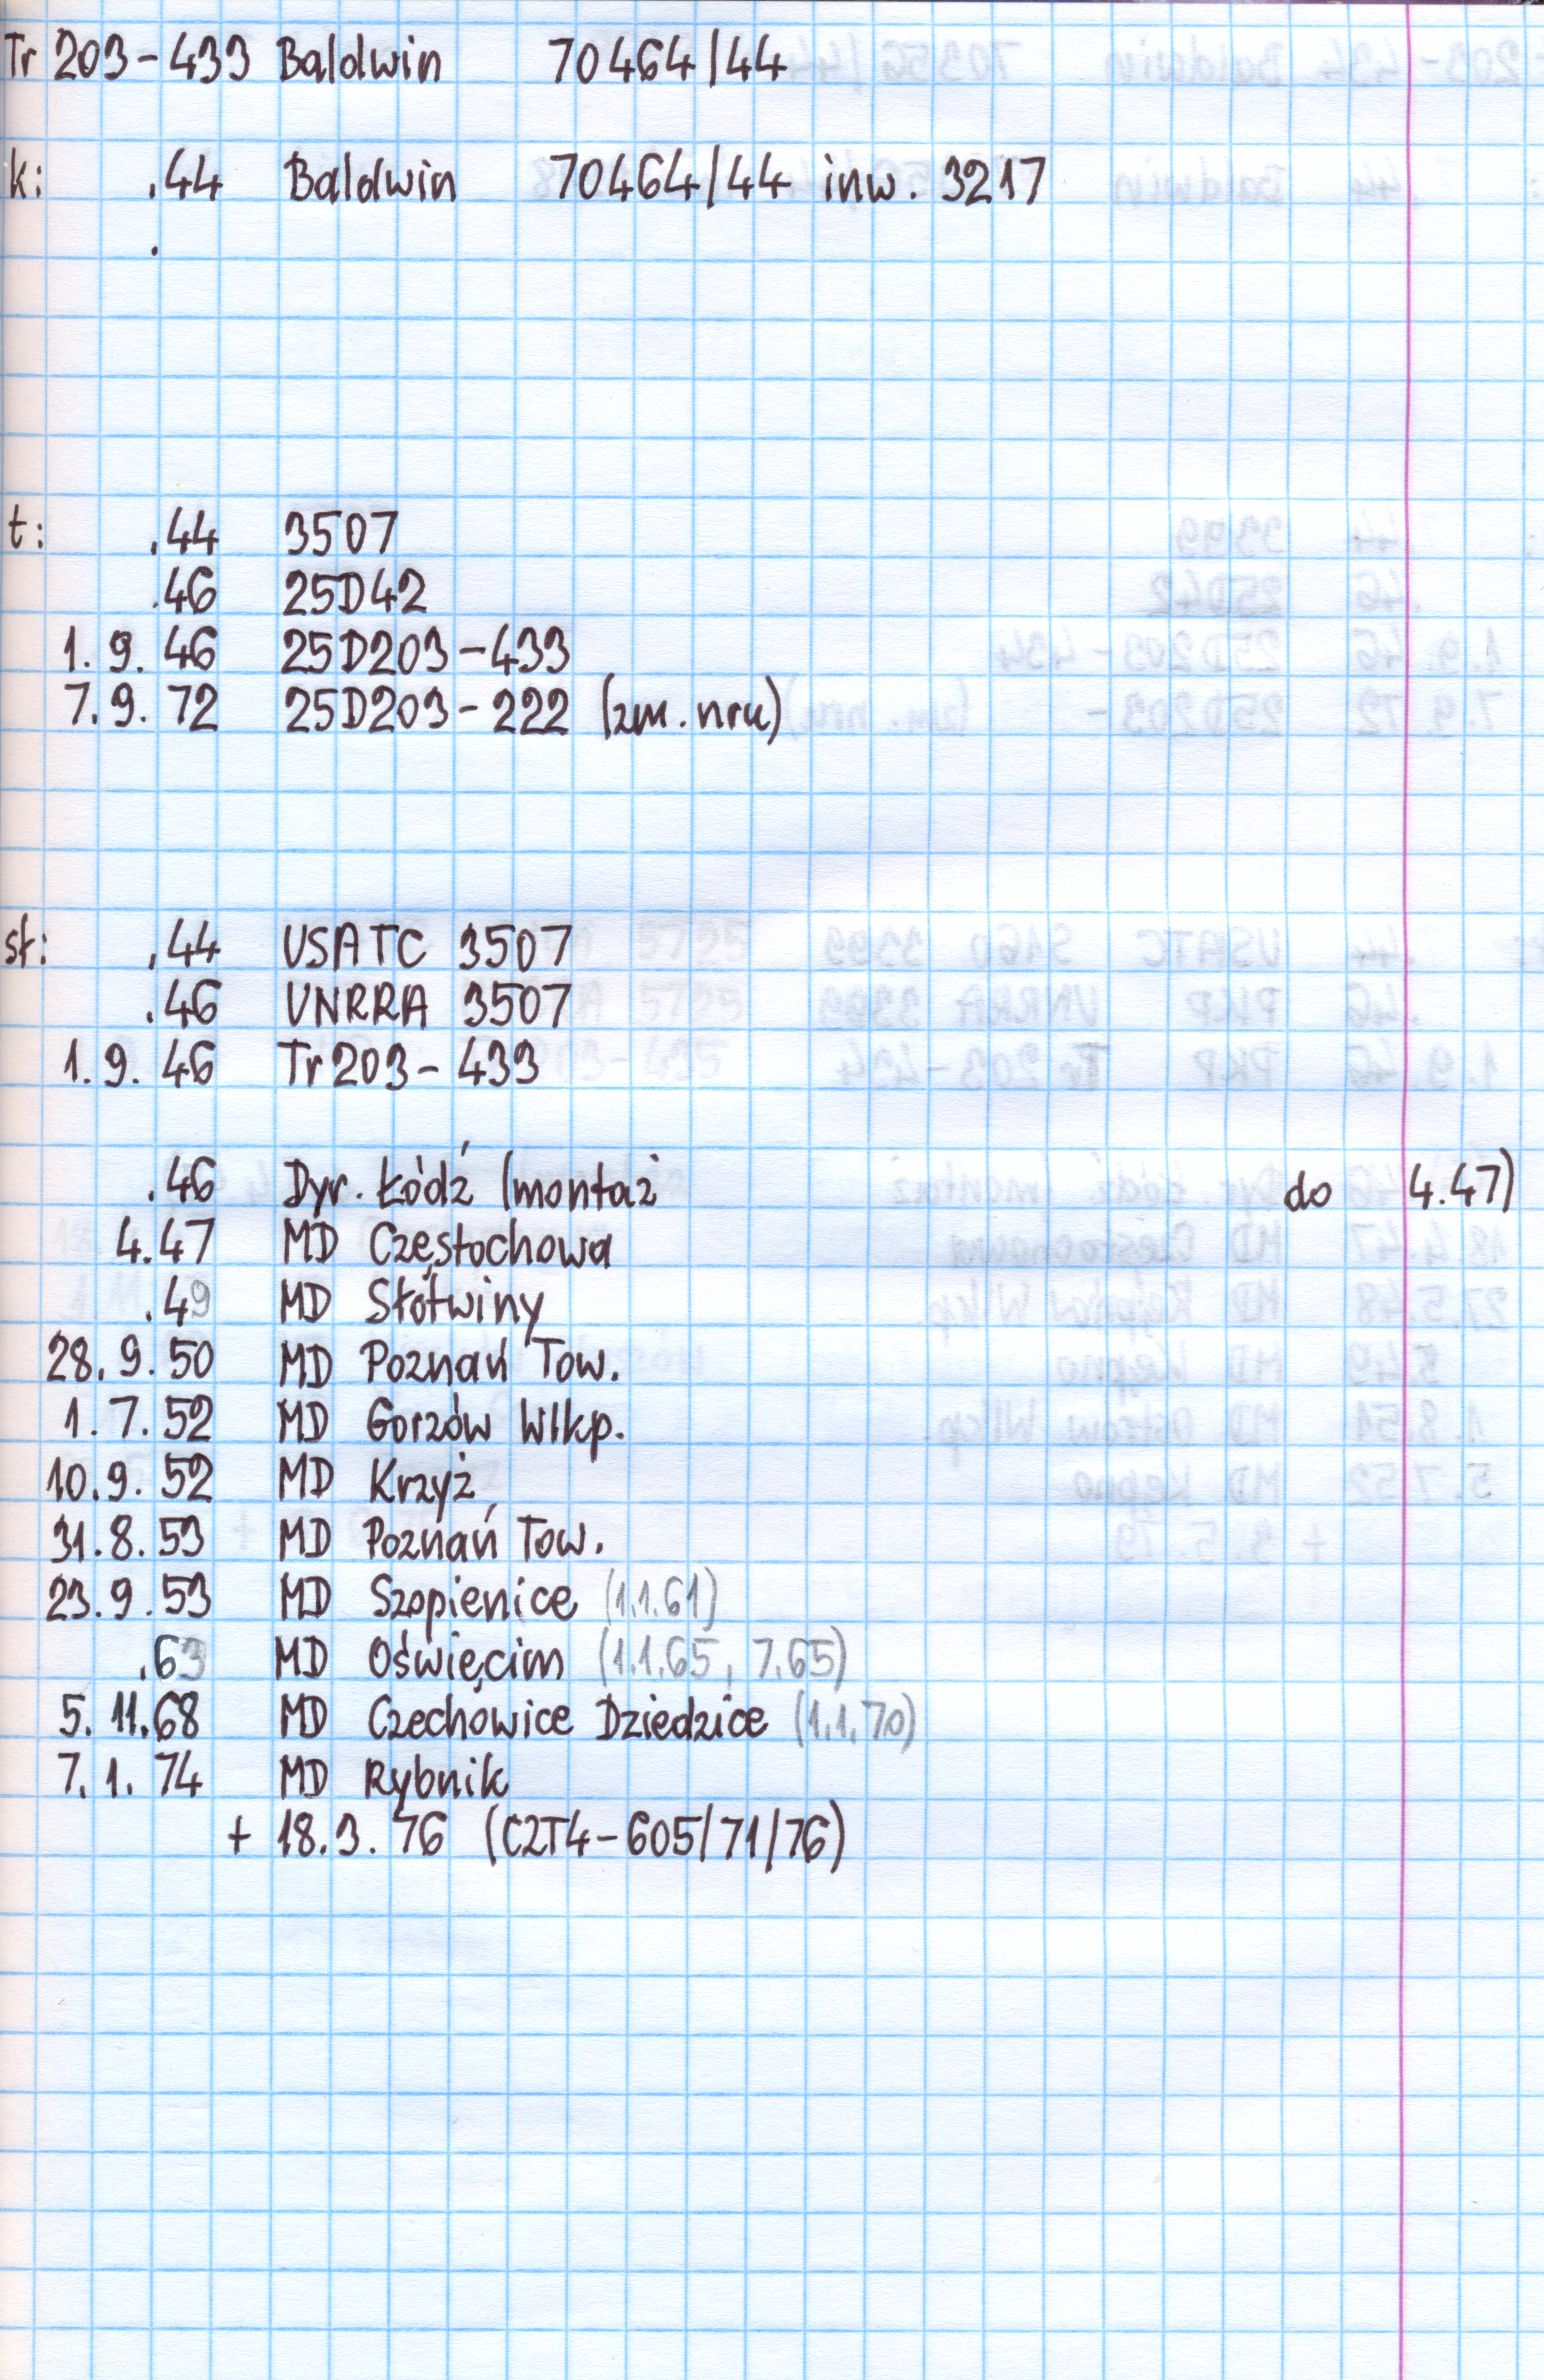 Tr 203-433 Baldwin 70464/44
k: .44 Baldwin 70464/44 inw. 3217
.
t: .44 3507
.46 25D42
1.9.46 25D203-433
7.9.72 25D203-222 (zm. nru)
sł: .44 USATC 3507
.46 UNRRA 3507
1.9.46 Tr203-433
.46 Dyr. Łódź (montaż do 4.47)
4.47 MD Częstochowa
.49 MD Słotwiny
28.9.50 MD Poznań Tow.
1.7.52 MD Gorzów Wlkp.
10.9.52 MD Krzyż
31.8.53 MD Poznań Tow.
23.9.53 MD Szopienice (1.1.61)
.63 MD Oświęcim (1.1.65, 7.65)
5.11.68 MD Czechowice Dziedzice (1.1.70)
7.1.74 MD Rybnik
+ 18.3.76 (C2T4-605/71/76)